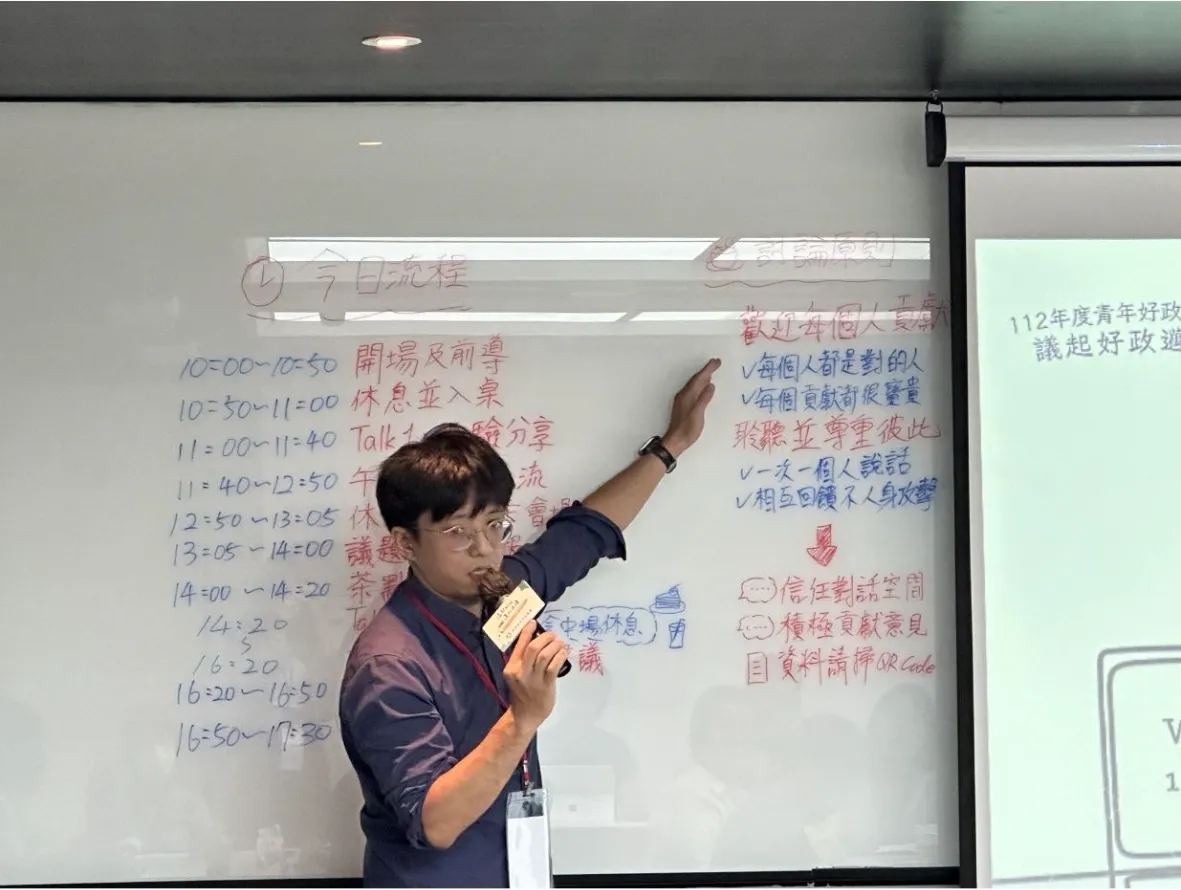 今日流程
10:00~10:50 開場及前導
10:50~11:00 休息並入桌
11:00~11:40 Talk 驗分享
11:40~12:50 午 流
12:50~13:05 休 會場
13:05~14:00 議題
14:00~14:20 茶點
14:20
16:20
中場休息
16:20~16:50 議
16:50~17:30
討論原則
歡迎每個人貢獻
✓每個人都是對的人
✓每個貢獻都很寶貴
聆聽並尊重彼此
✓一次一個人說話
✓相互回饋不人身攻擊
信任對話空間
積極貢獻意見
資料請掃QR Code
112年度青年好政
議起好政遊